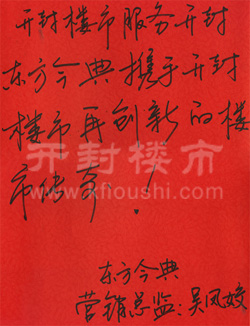 开封楼市服务开封
东方今典携手开封
楼市再创新的楼
市传奇！
开封楼市
www.kfloushi.com
东方今典
营销总监:吴凤姣